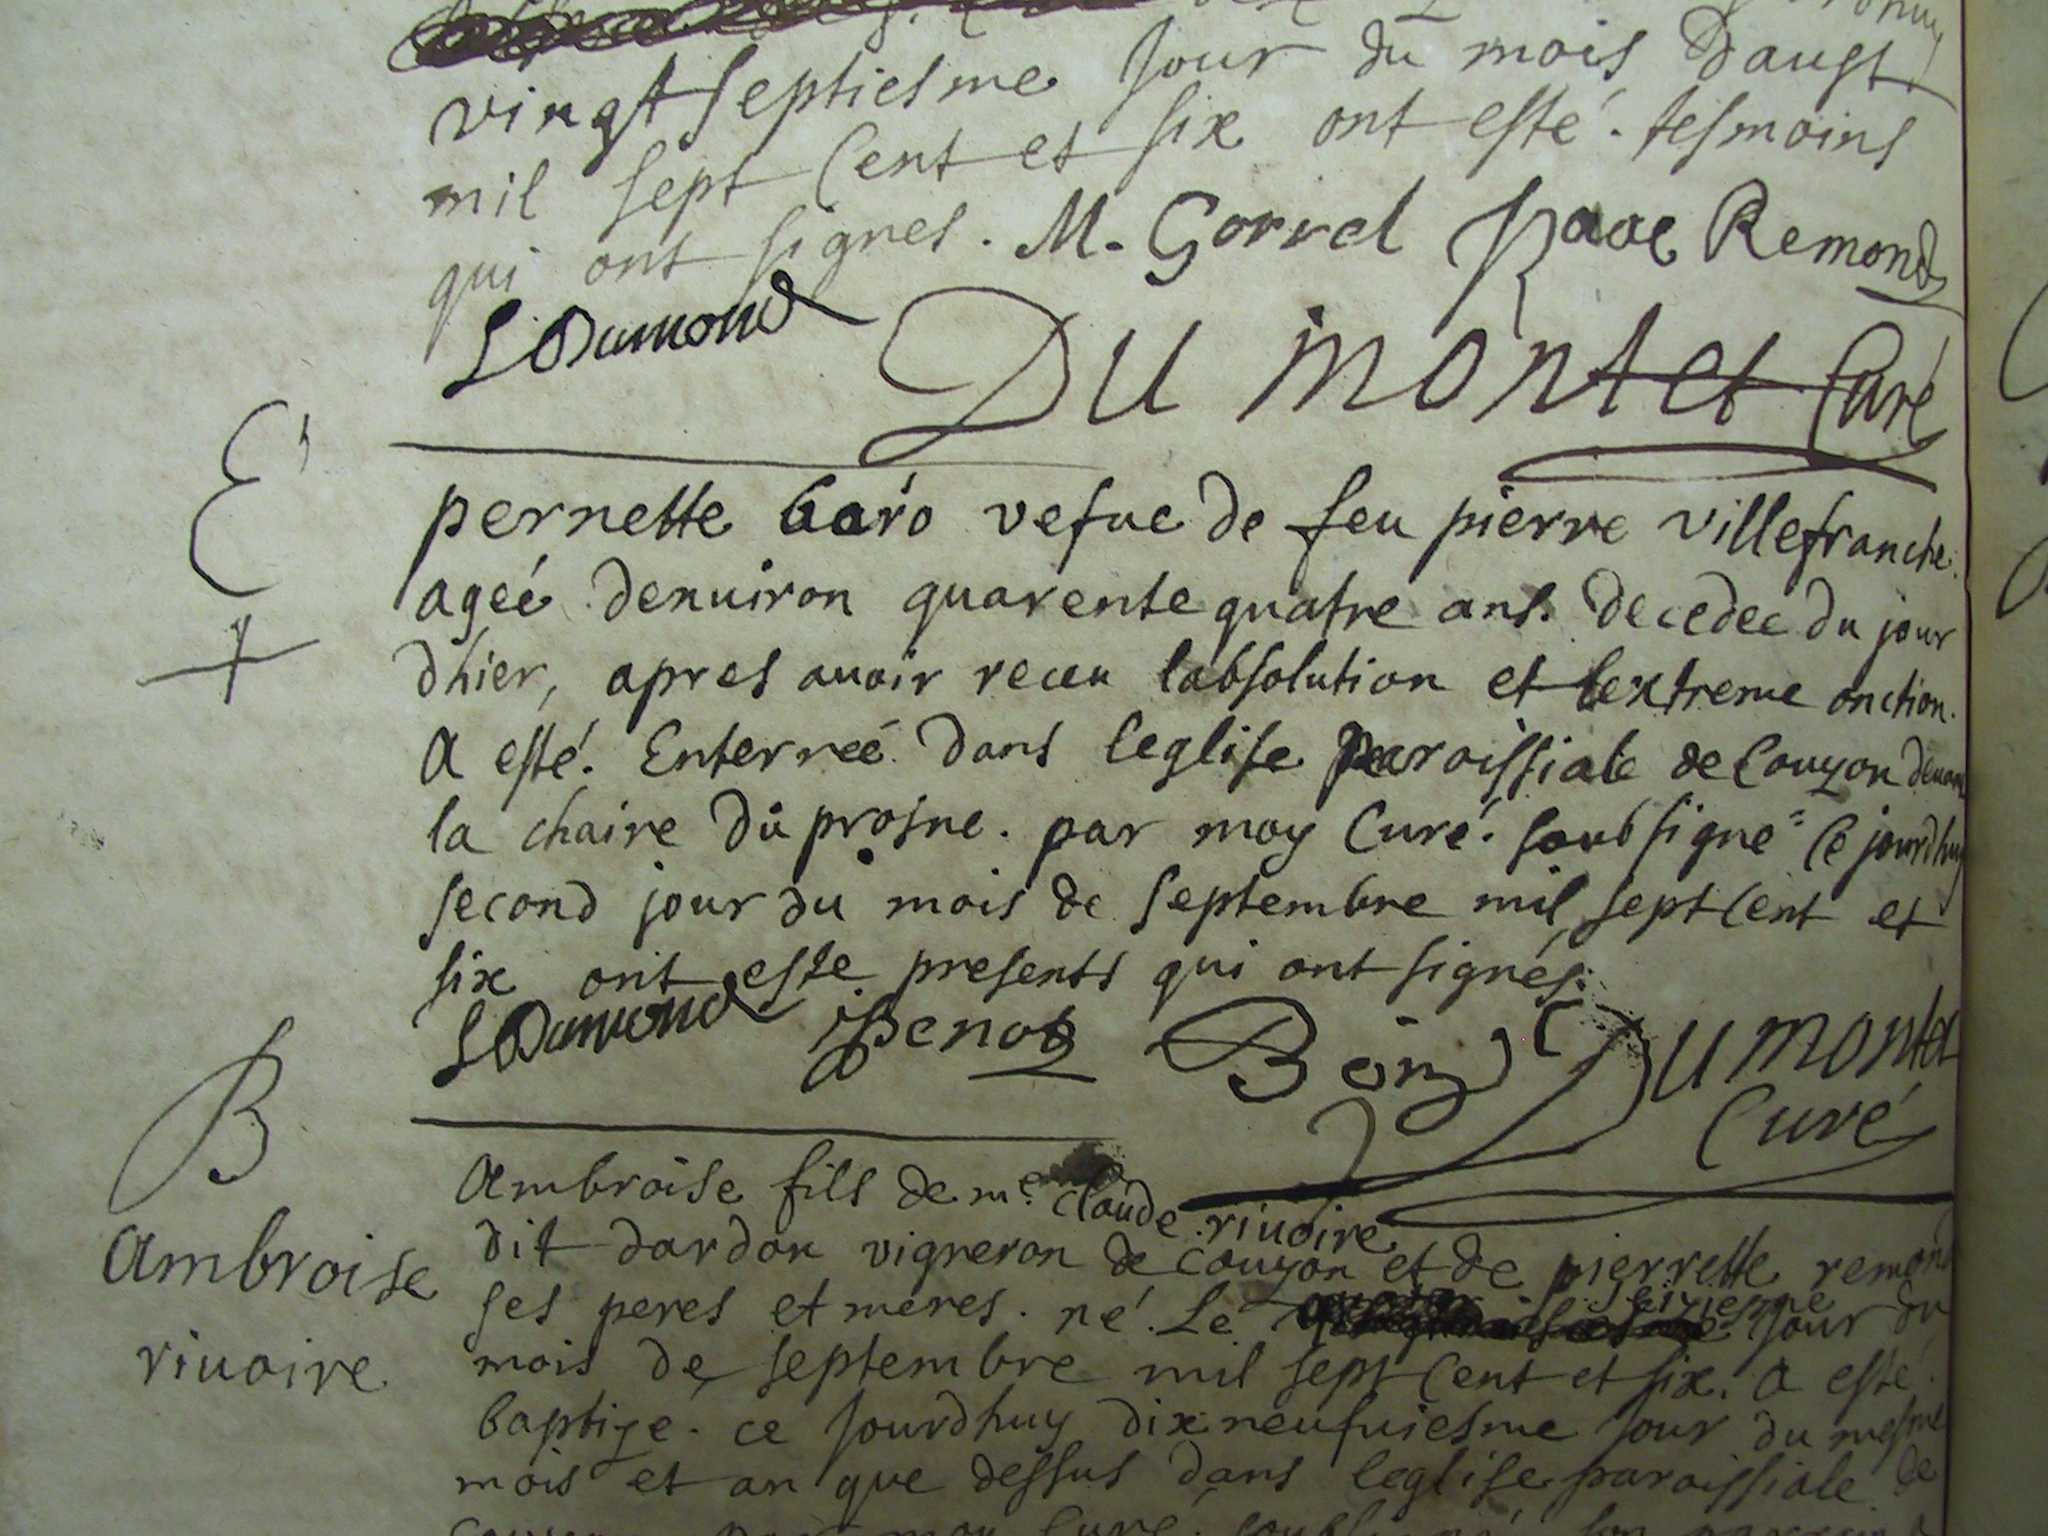 vingt septiesme Jour du mois Daust
mil sept Cent et six ont esté. tesmoins
qui ont signes. M. Gorrel Isaac Remond
L Dumond Du montet Curé
E
pernette baro vefue de feu pierre villefranche
ageé denuiron quarente quatre ans. decedee du jour
dhier, apres auoir receu labsolution et lextreme onction.
a esté. Enterreé dans leglise paroissiale de Couzon deuant
la chaire du prosne. par moy Curé. soubsigné Ce jourdhuy
second jour du mois de septembre mil sept Cent et
six ont este presents qui ont signés.
L Dumond Benoz Dumontet
Curé
B
Ambroise
riuoire
Ambroise fils de me. Claude riuoire
dit dardon vigneron de Couzon et de pierrette remond
ses peres et meres. né. Le seiziesme Jour du
mois de septembre mil sept Cent et six. a esté.
baptizé. ce Jourdhuy dix neufuiesme Jour du mesme
mois et an que dessus dans leglise paroissiale de
par moy Curé. soubsigné son